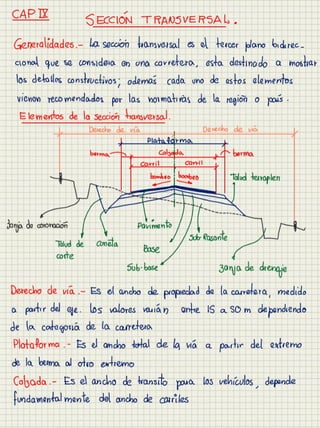 CAP IV
SECCIÓN TRANSVERSAL.
Generalidades.- La sección transversal es el tercer plano bidirec-
cional que se considera en una carretera, esta destinado a mostrar
los detalles constructivos; además cada uno de estos elementos
vienen recomendados por las normativas de la región o país.
Elementos de la Sección transversal.
Derecho de vía Derecho de vía
Plataforma
berma Calzada berma
carril carril
bombeo bombeo Talud terraplen
Zanja de coronación Pavimento Sub Rasante
Talud de corte Cuneta Base
Sub-base Zanja de drenaje
Derecho de vía.- Es el ancho de propiedad de la carretera, medido
a partir del eje. Los valores varían entre 15 a 50 m dependiendo
de la categoría de la carretera
Plataforma.- Es el ancho total de la vía a partir del extremo
de la berma al otro extremo
Calzada.- Es el ancho de transito para los vehículos, depende
fundamentalmente del ancho de carriles